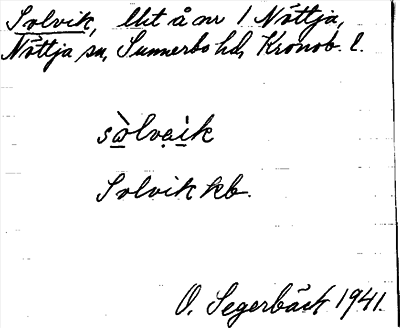 Solvik, lht å nr 1 Nöttja,
Nöttja sn, Sunnerbo hd, Kronob. l.
sòlvạìk
Solvik kb.
O. Segerbäck 1941.